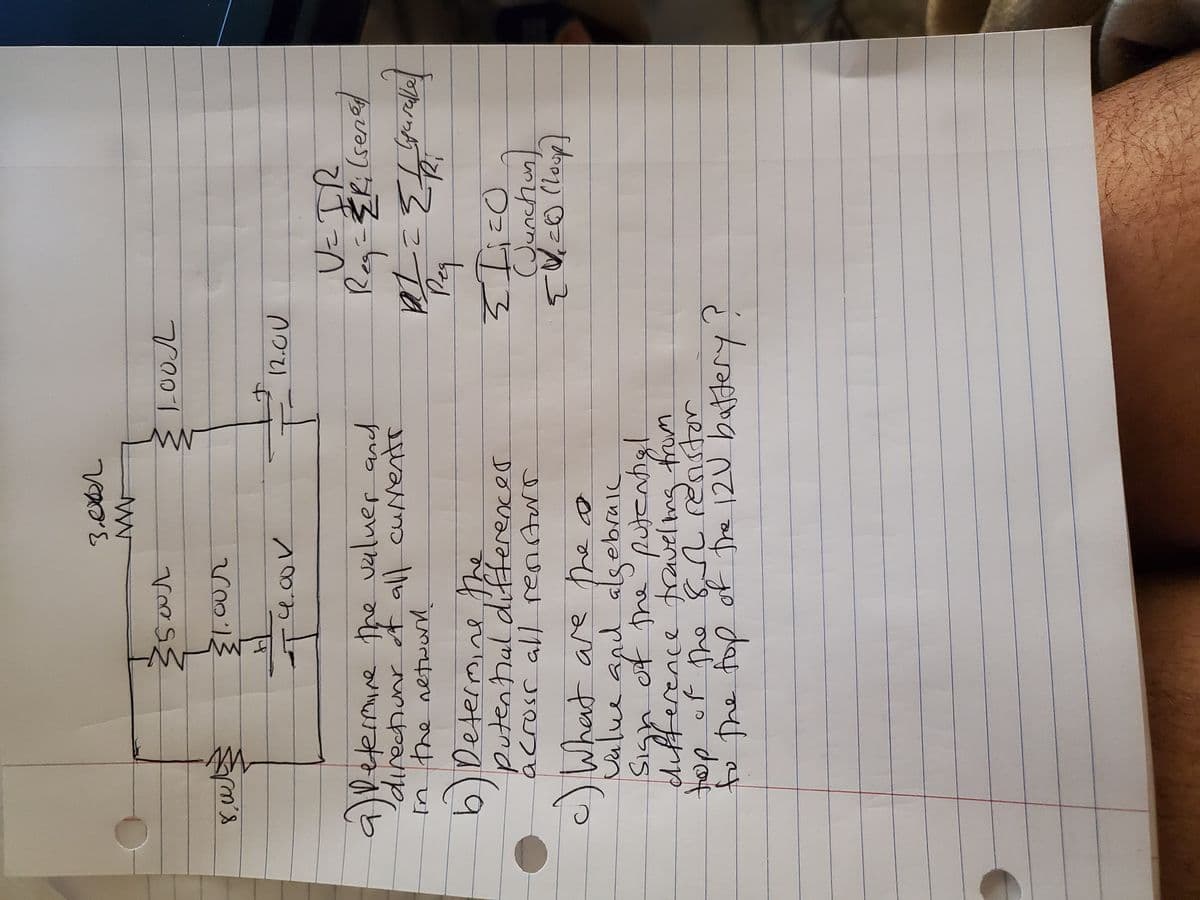 3.00Ω
5.00Ω
1.00Ω
8.00Ω
1.00Ω
+
4.00V
+
- 12.0V
a) Determine the values and
directions of all currents
in the network.
b) Determine the
potential differences
across all resistors
c) What are the
value and algebraic
sign of the potential
difference traveling from
top of the 8Ω resistor
to the top of the 12V battery?
V=IR
Req = ΣRi (series)
1/Req = Σ 1/Ri (parallel)
ΣIi=0
(Junction)
ΣVi=0 (loop)